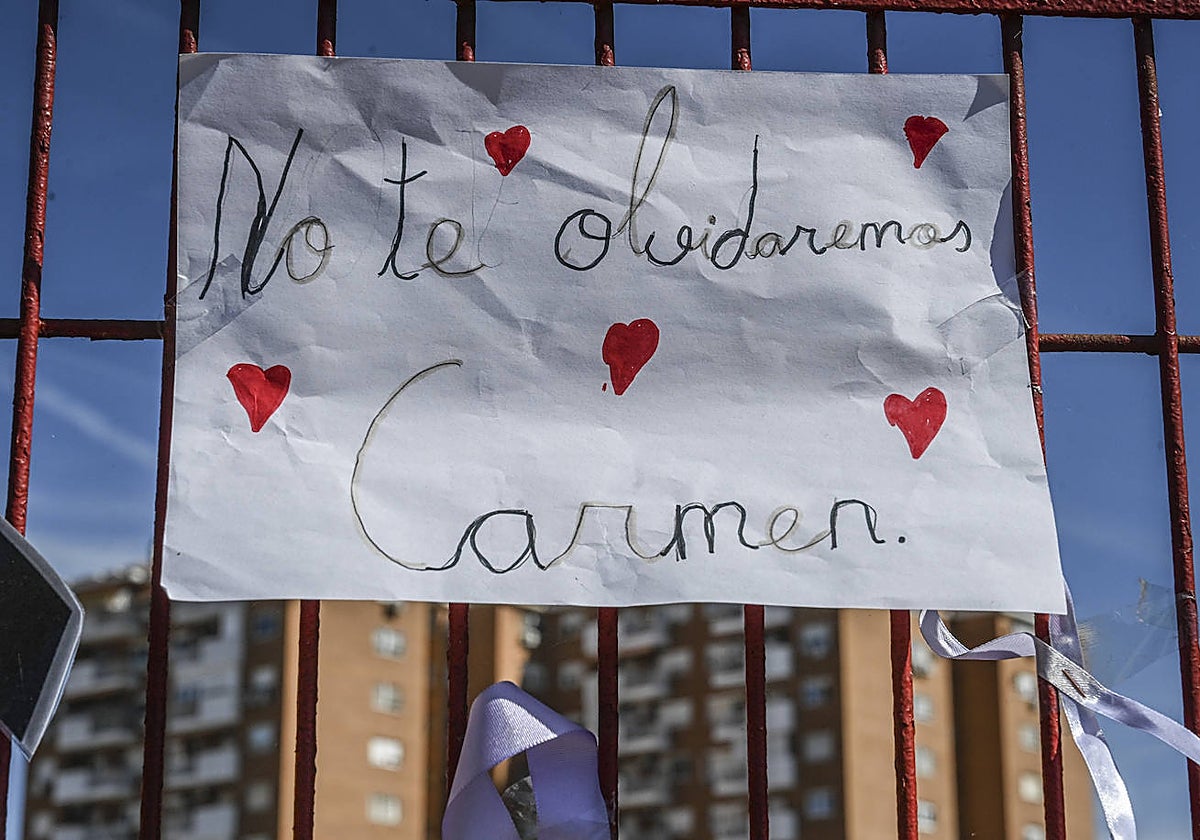 No te olvidaremos
Carmen.